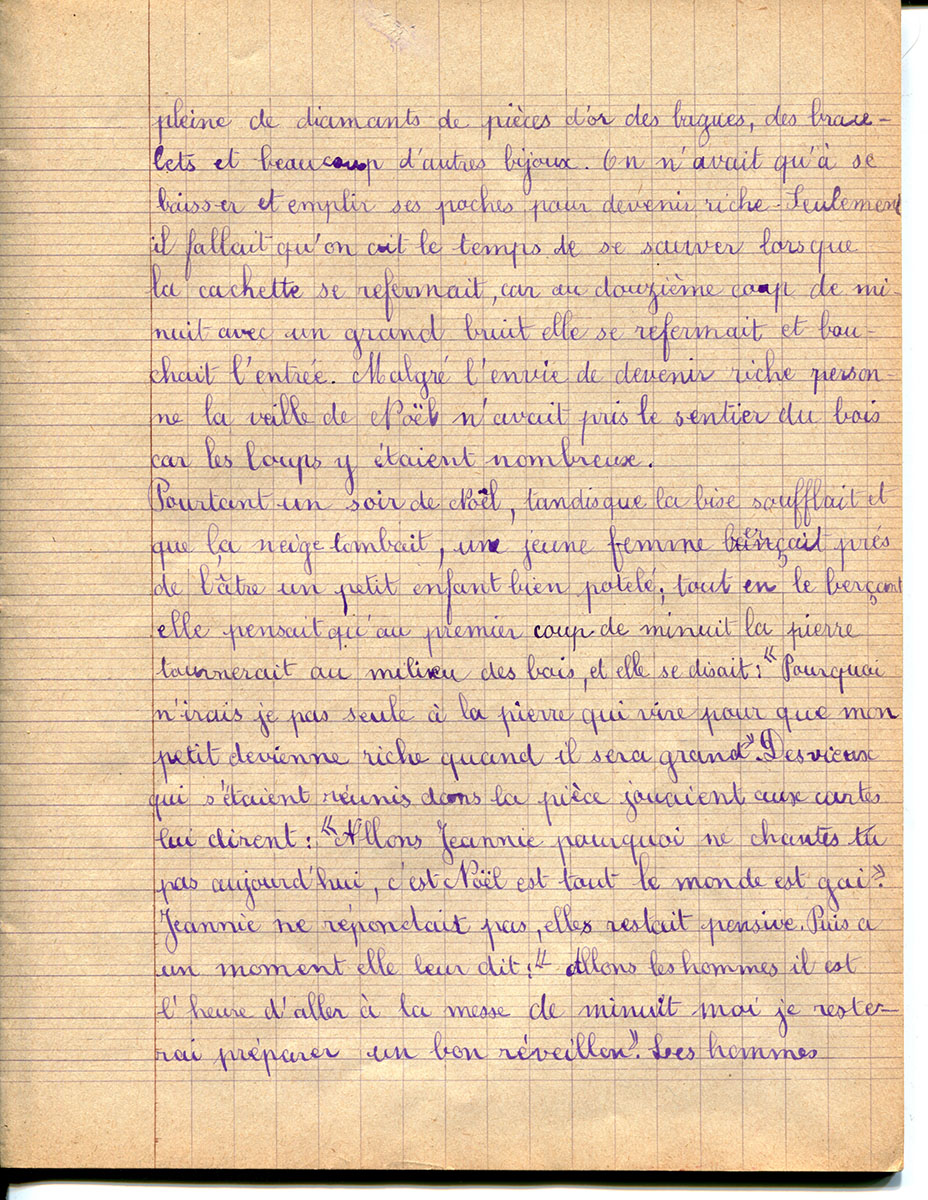 pleine de diamants de pièces d'or des bagues, des brace-
lets et beaucoup d'autres bijoux. On n'avait qu'à se
baisser et emplir ses poches pour devenir riche. Seulement
il fallait qu'on ait le temps de se sauver lorsque
la cachette se refermait, car au douzième coup de mi-
nuit avec un grand bruit elle se refermait et bou-
chait l'entrée. Malgré l'envie de devenir riche person-
ne la veille de Noël n'avait pris le sentier du bois
car les loups y étaient nombreux.
Pourtant un soir de Noël, tandis que la bise soufflait et
que la neige tombait, une jeune femme berçait près
de l'âtre un petit enfant bien potelé; tout en le berçant
elle pensait qu'au premier coup de minuit la pierre
tournerait au milieu des bois, et elle se disait: "Pourquoi
n'irais je pas seule à la pierre qui vire pour que mon
petit devienne riche quand il sera grand". Des vieux
qui s'étaient réunis dans la pièce jouaient aux cartes
lui dirent: "Allons Jeannie pourquoi ne chantes tu
pas aujourd'hui, c'est Noël est tout le monde est gai".
Jeannie ne répondait pas, elle restait pensive. Puis a
un moment elle leur dit: "Allons les hommes il est
l'heure d'aller à la messe de minuit moi je reste-
rai préparer un bon réveillon". Les hommes